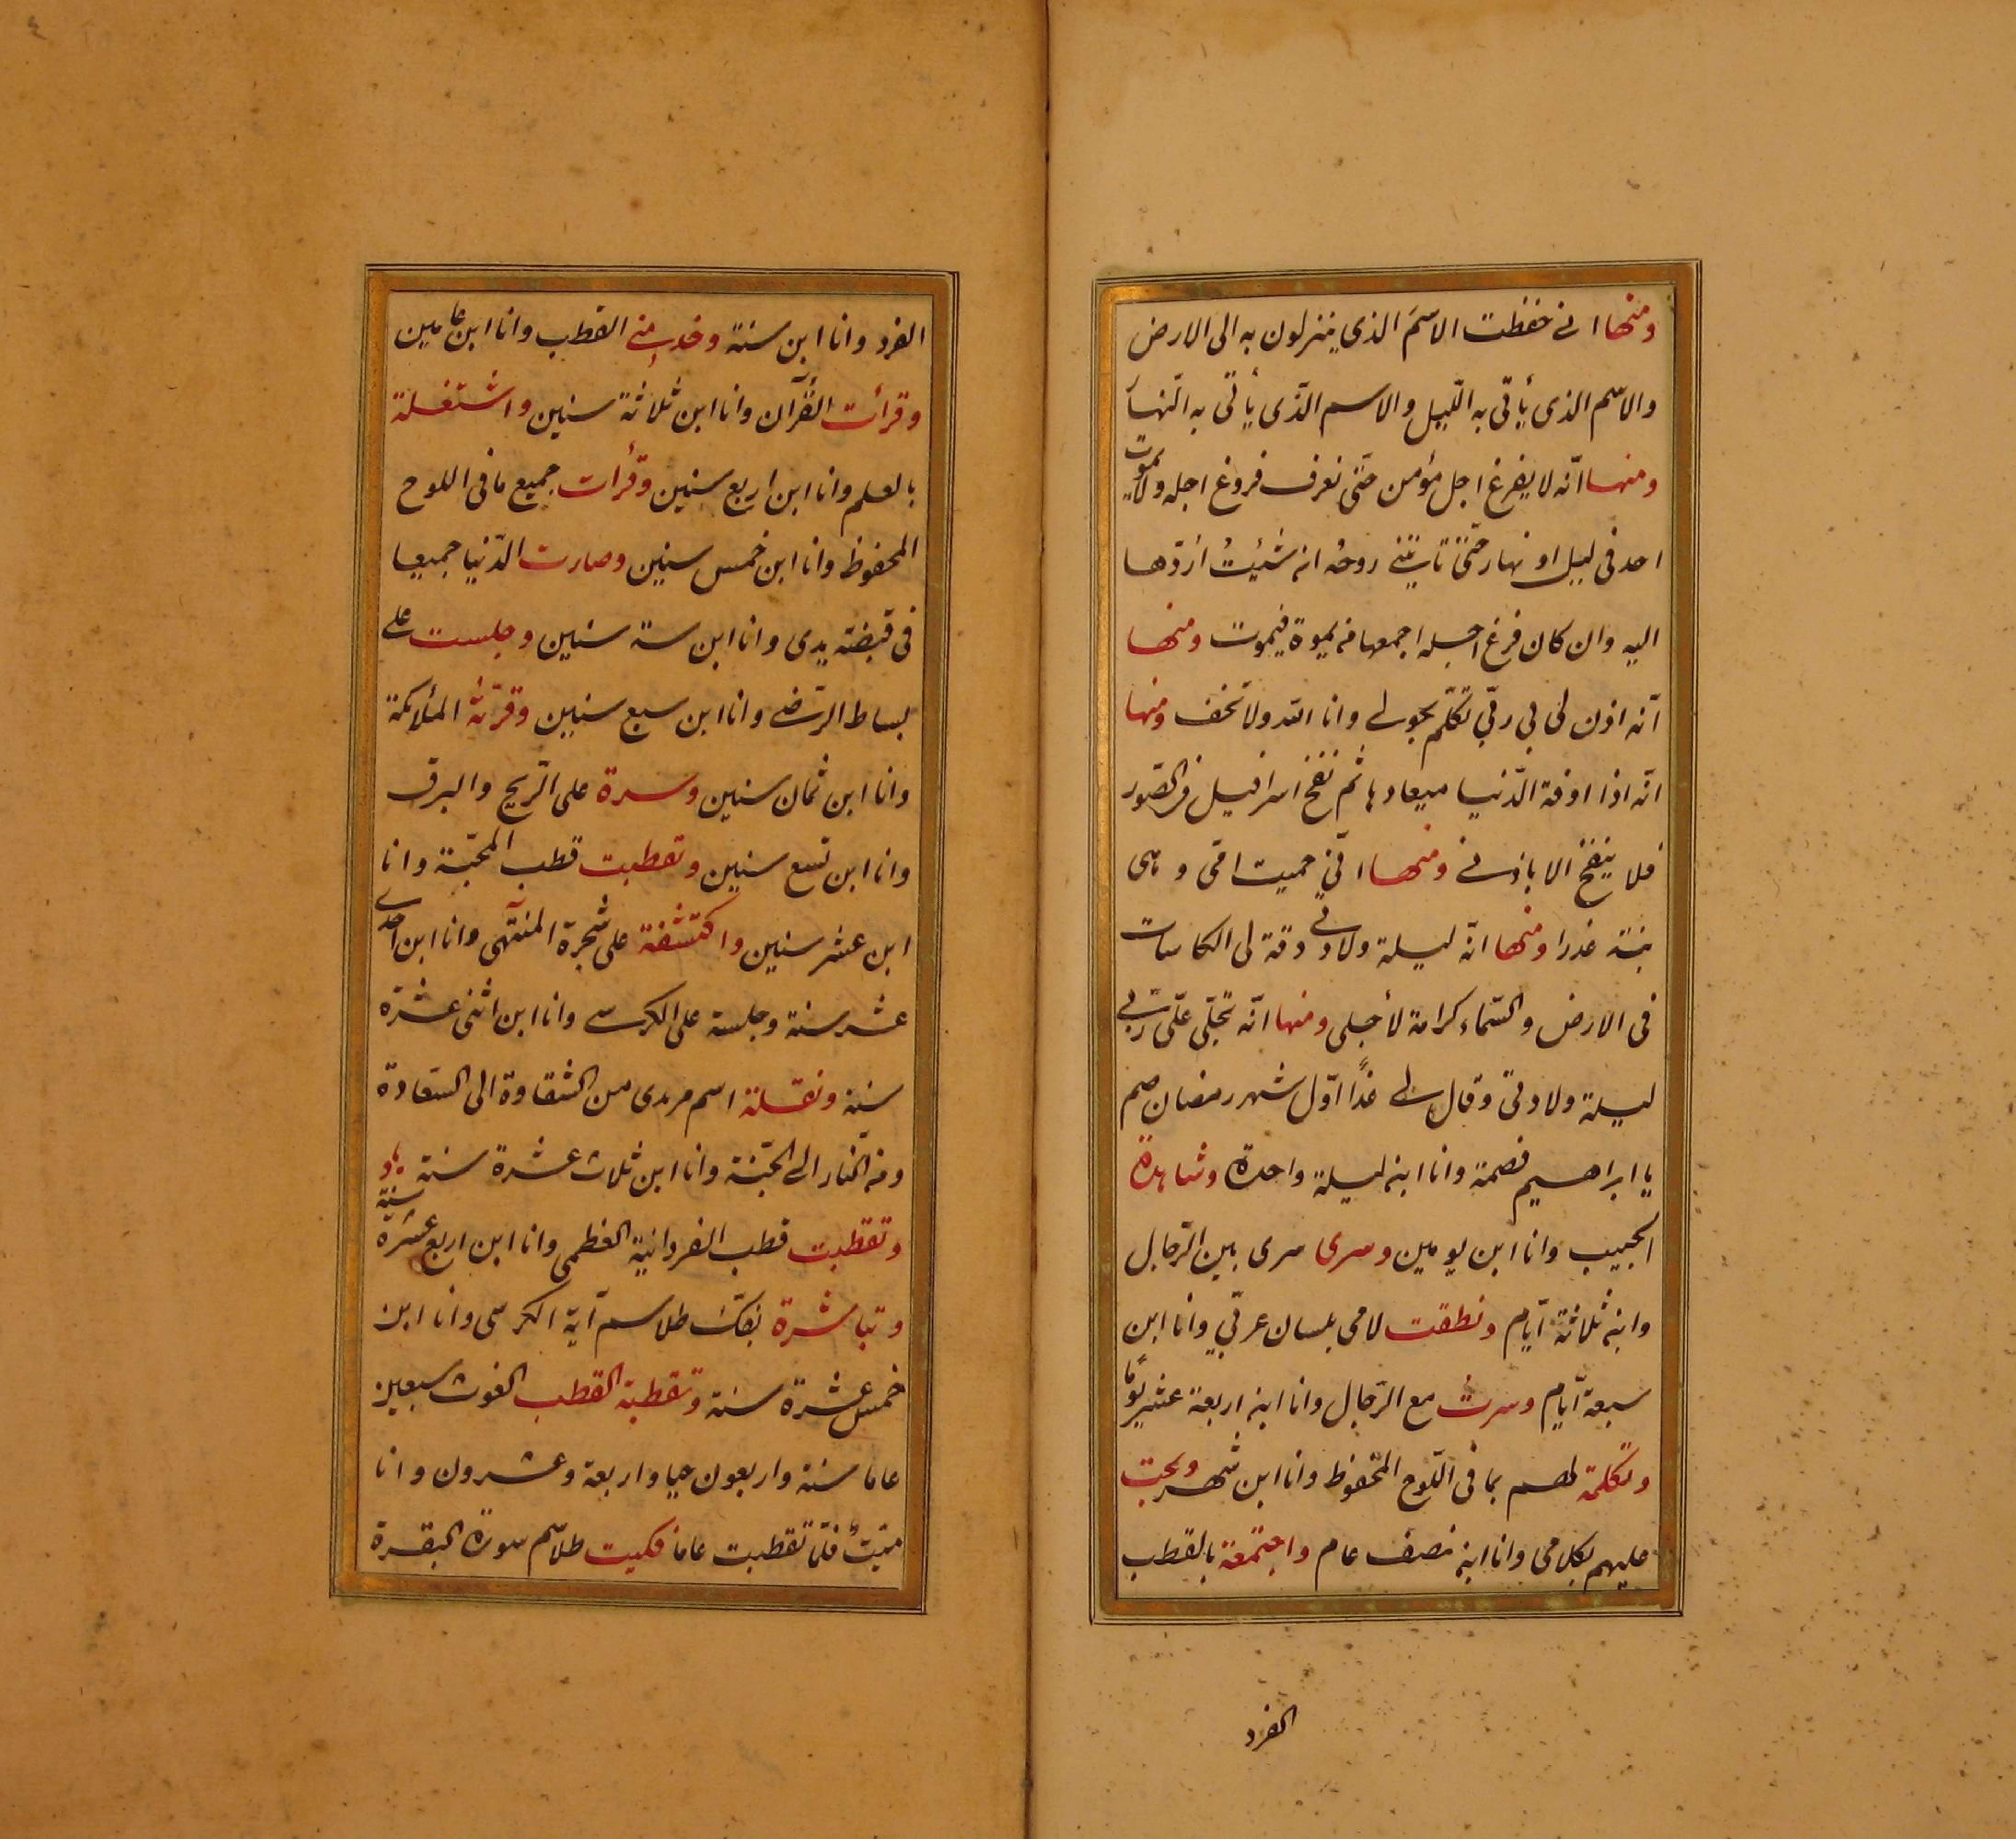 ومنها اني حفظت الاسمَ الذي ينزلون به الى الارض
والاسم الذي يأتي به اللّيل والاسم الذّي يأتي به النّهار
ومنها انّه لا يفرغ اجل مؤمن حتّى نعرف فروغ اجله ولا يموت
احد في ليل او نهار حتّى تاتيني روحه ان شئيتُ أردّها
اليه وان كان فرغ اجله اجمعها من يموة فيموت ومنها
انّه اذن لي بي ربّي تكلّم بحولي وانا الله ولا تخف ومنها
انّه اذا اوفة الدّنيا ميعادها ثم نفخ اسرافيل في الصّور
فلا ينفخ الا باذني ومنها انّي حميت امّي وهي
بنة عذرا ومنها انّه ليلة ولادتي دقة لي الكاسات
في الارض والسّماء كرامة لأجلي ومنها انّه تجلّى علّي ربّي
ليلة ولادتي وقال لي غدًا اوّل شهر رمضان صم
يا ابراهيم فصمة وانا ابن ليلة واحدة وشاهدة
الحبيب وانا ابن يومين وسرى سرى بين الرّجال
وابن ثلاثة ايّام ونطقت لامي بلسان عربّي وانا ابن
سبعة ايّام وسرتُ مع الرّجال وانا ابن اربعة عشر يومًا
وتكلمة لهم بما في اللّوح المحفوظ وانا ابن شهر وبحت
عليهم بكلامي وانا ابن نصف عام واجتمعة بالقطب
الفرد
الفرد وانا ابن سنة وخدب مني القطب وانا ابن عامين
وقرأت القرآن وانا ابن ثلاثة سنين واشتغلة
بالعلم وانا ابن اربع سنين وقرأت جميع ما في اللوح
المحفوظ وانا ابن خمس سنين وصارت الدّنيا جميعا
في قبضة يدي وانا ابن ستة سنين وجلست على
بساط الرّضى وانا ابن سبع سنين وقرتّه الملائكة
وانا ابن ثمان سنين وسرة على الرّيح والبرق
وانا ابن تسع سنين وتقطبت قطب المحبّة وانا
ابن عشر سنين واكتشفة على شجرة المنتهى وانا ابن احدى
عشر سنة وجلسة على الكرسي وانا ابن اثنى عشرة
سنة ونقلة اسم مريدي من الشقاوة الى السّعادة
ومن النّار الى الجنّة وانا ابن ثلاث عشرة سنة
وتقطبت قطب الفردانية العظمى وانا ابن اربع عشرة سنة
وتباشرة بفكّ طلاسم آية الكرسي وانا ابن
خمس عشرة سنة وتقطبة القطب الغوث سبعين
عاما سنة واربعون حيا واربعة وعشرون وانا
ميّتٌ فلمّا تقطبت عاما فكيت طلاسم سورة البقرة